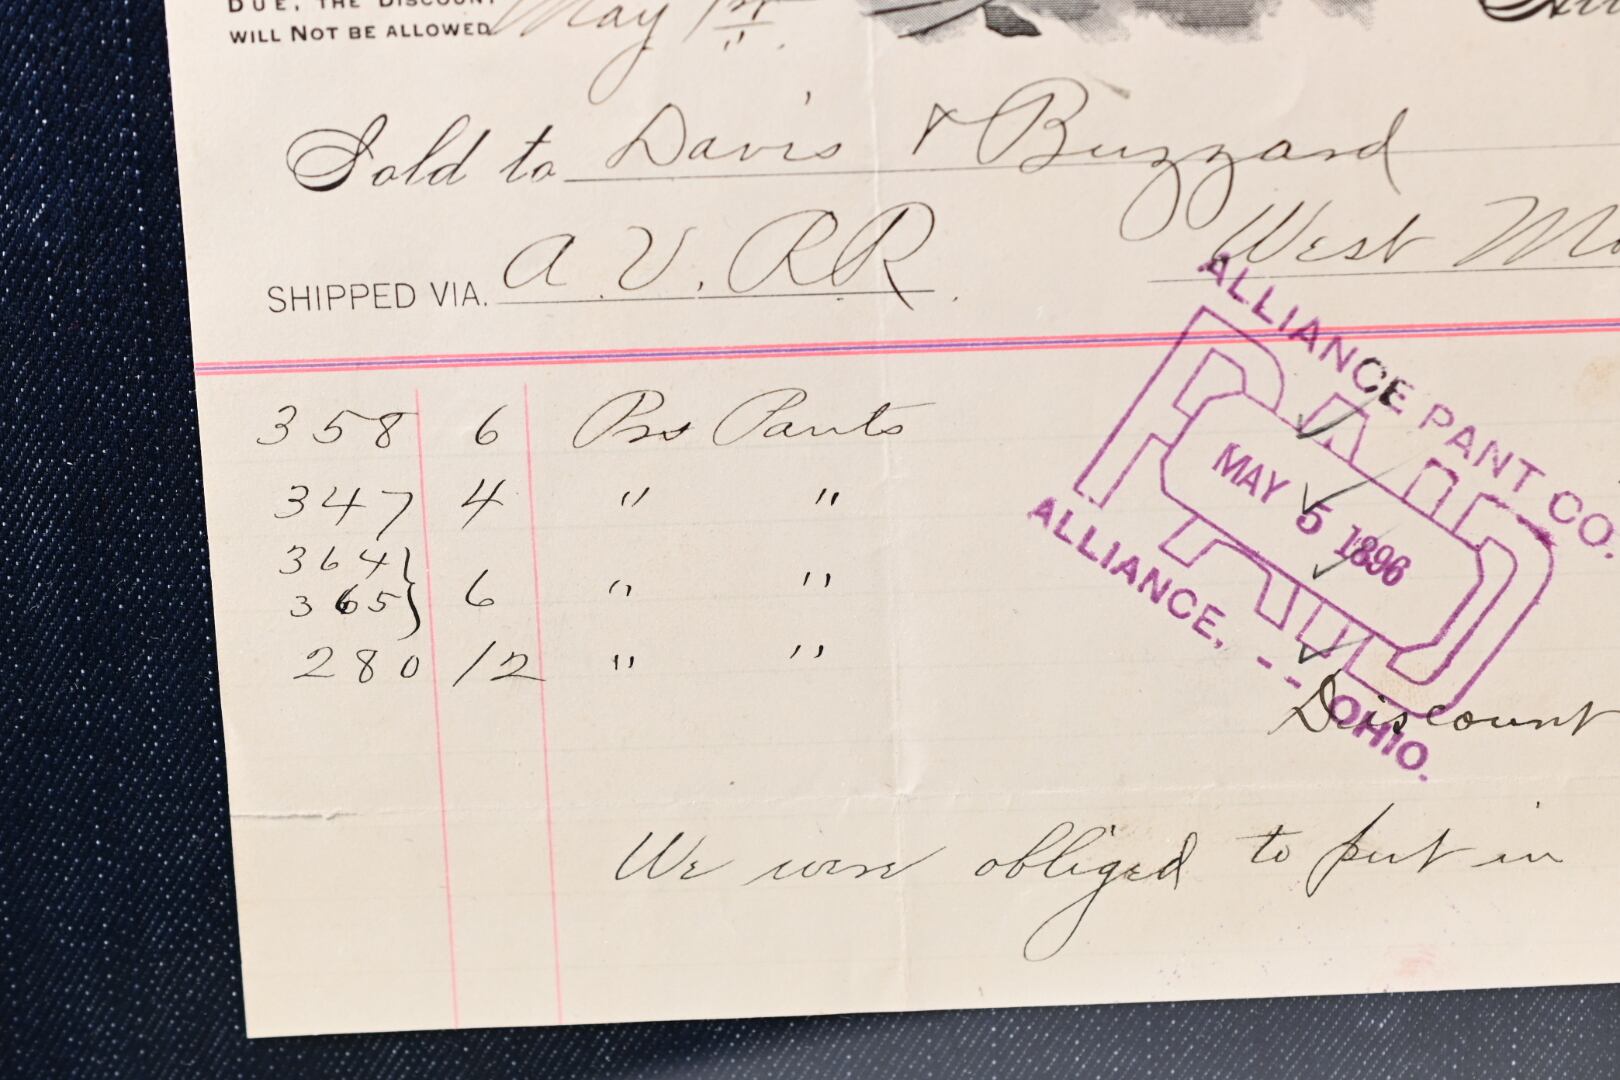 DUE, THE DISCOUNT
WILL NOT BE ALLOWED
May 1st
Sold to Davis & Buzzard
SHIPPED VIA. A.V.RR.
West
358 6 Prs Pants
347 4 " "
364}
365} 6 " "
280 12 " "
ALLIANCE PANT CO.
PAID
MAY 5 1896
ALLIANCE, - - OHIO.
Discount
We were obliged to put in